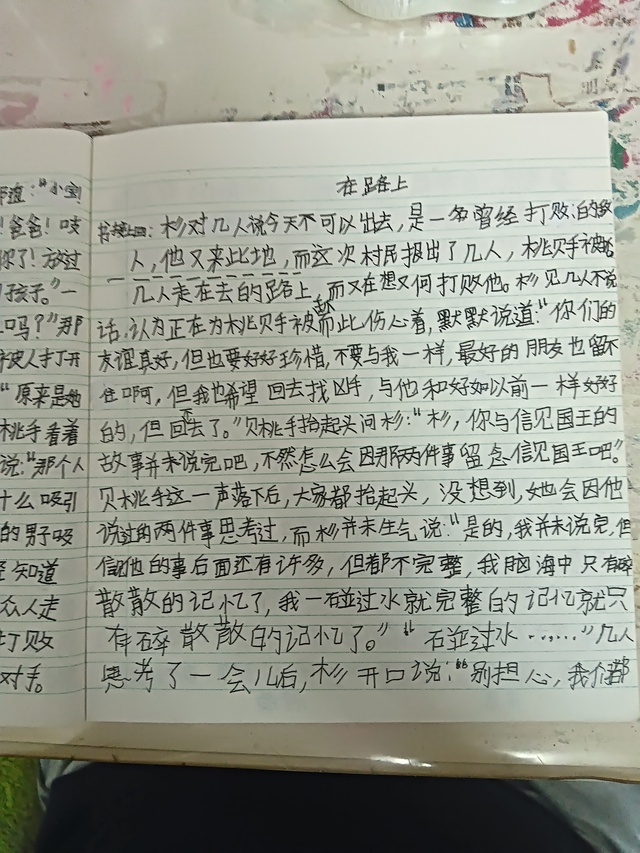 那道：“小宝
！爸爸！吱
你了！放过
孩子。”一
吗？”那
被人打开
“原来是她
桃手看着
说：“那个人
什么吸引
的男子吸
知道
众人走
打败
对手。
在路上
书接上回：杉对几人说今天不可以出去，是一个曾经打败的敌
人，他又来此地，而这次村民报出了几人，桃贝手被
几人走在去的路上，而又在想又何打败他。杉见几人不说
话，认为正在为桃贝手被而此伤心着，默默说道：“你们的
友谊真好，但也要好好珍惜，不要与我一样，最好的朋友也留不
住啊，但我也希望回去找凶手，与他和好如以前一样好好
的，但回不去了。”贝桃手抬起头问杉：“杉，你与信见国王的
故事并未说完吧，不然怎么会因那两件事留念信见国王吧。”
贝桃手这一声落下后，大家都抬起头，没想到，她会因他
说过的两件事思考过，而杉并未生气说：“是的，我并未说完，但
他的事后面还有许多，但都不完整，我脑海中只有
散散的记忆了，我一碰过水就完整的记忆就只
有碎散散的记忆了。”“碰过水……”几人
思考了一会儿后，杉开口说：“别担心，我们都